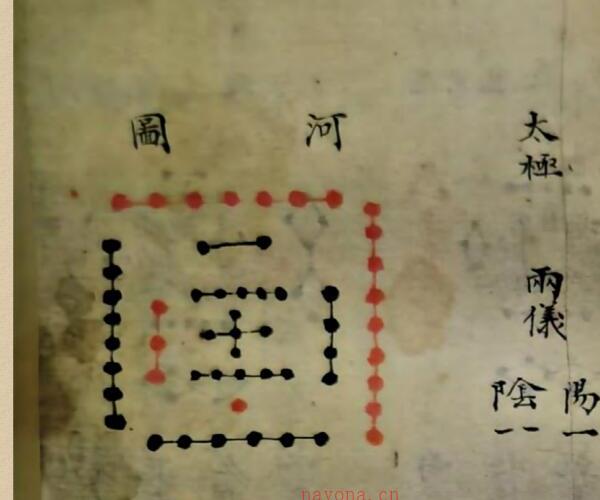 太極
兩儀
陽 陰
河圖
nayona.cn